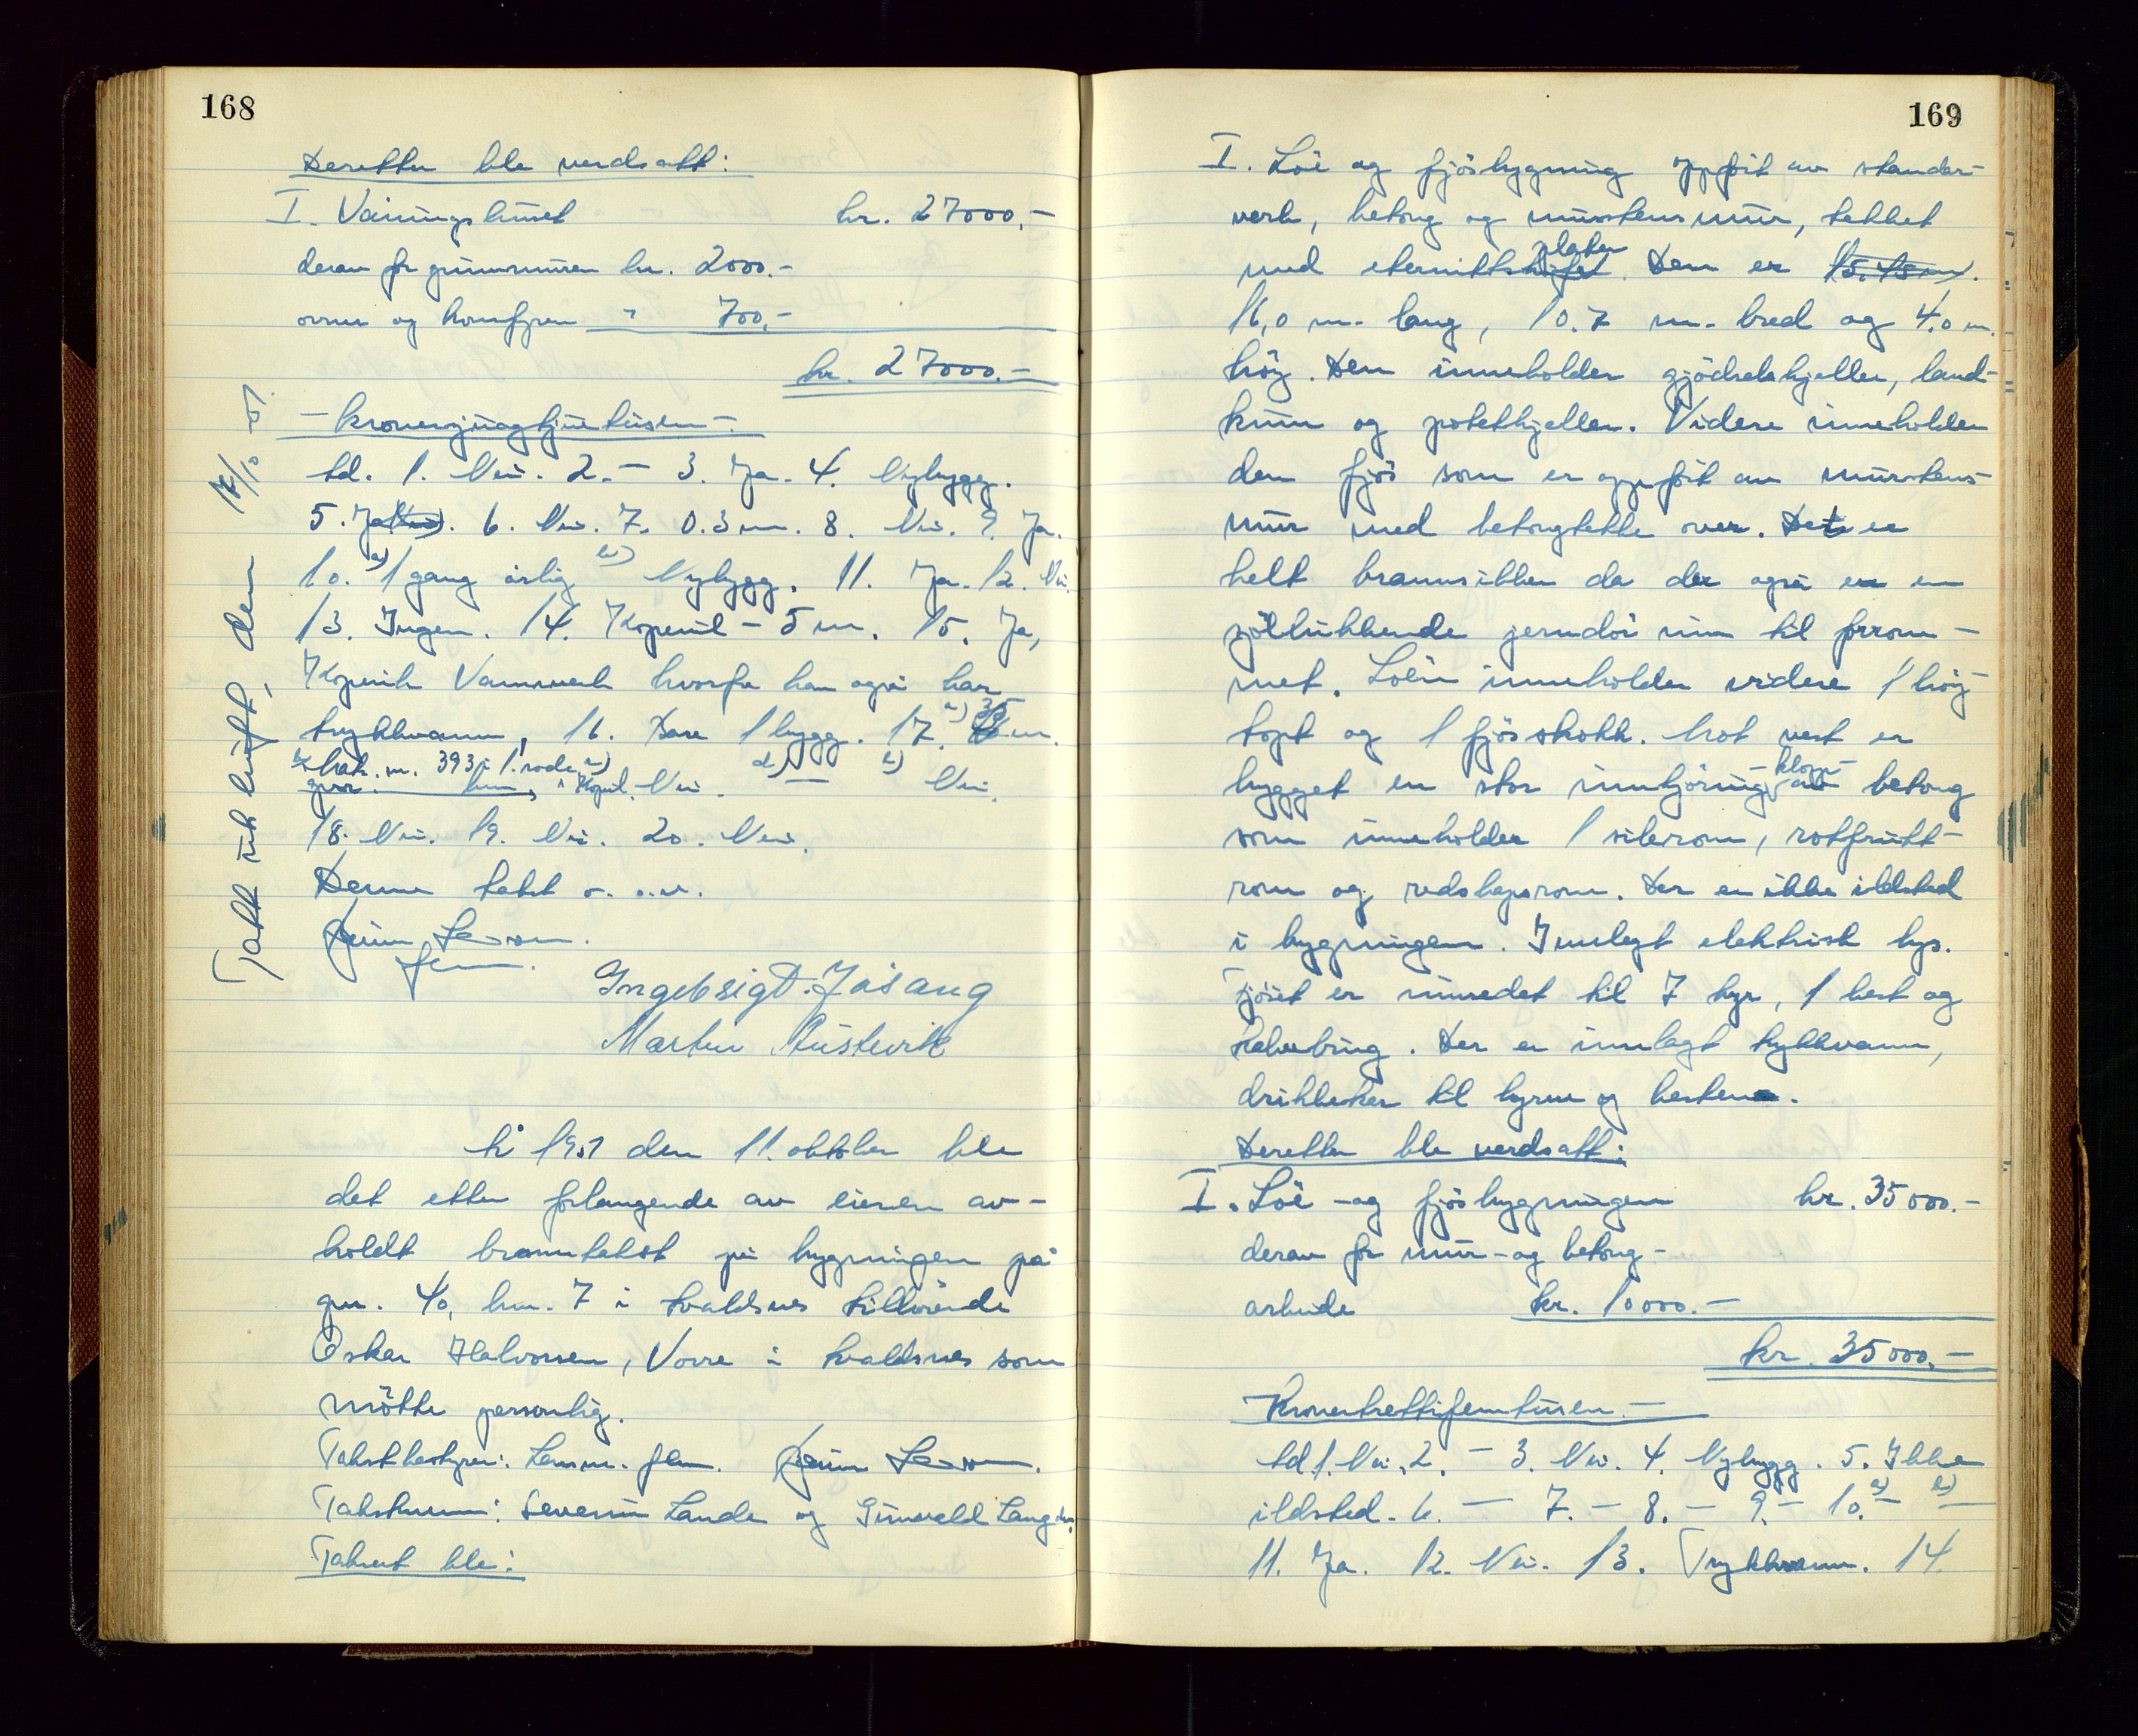 168
Deretter ble verdsatt:
I. Våningshuset kr. 27000,-
derav for grunnmuren kr. 2000.-
ovner og komfyren " 700,-
kr. 27000.-
- Kronertjuesjutusen -
td. 1. Nei. 2. - 3. Ja. 4. Nybygg.
5. Ja (Nei). 6. Nei. 7. 0.3 m. 8. Nei. 9. Ja.
10. a) 1 gang årlig b) Nybygg. 11. Ja. 12. Nei.
13. Ingen. 14. Kopervik - 5 m. 15. Ja,
Kopervik Vannverk hvorfra han også har
trykkvann, 16. Bare 1 bygg. 17. a) 35 m.
b) matr. nr. 393 i 1. rode c) Nei. d) - e) Nei.
18. Nei. 19. Nei. 20. Nei.
Denne takst o. s. v.
Ingebrigt Jåsang
Martin Austevik
Takst utskrift, den 17/10 51.
År 1951 den 11. oktober ble
det etter forlangende av eieren av-
holdt branntakst på bygningen på
gnr. 40, bnr. 7 i Avaldsnes tilhørende
Oskar Halvorsen, Vorre i Avaldsnes som
møtte personlig.
Takstbestyrer: Lensm. flm.
Takstmenn: Severin Lande og Gunvald Langåker.
Taksert ble:
169
I. Löe og fjösbygning oppfört av stender-
verk, betong og murstens mur, tekket
med eternittskifer plater. Den er 15.45 m.
16,0 m. lang, 10.7 m. bred og 4.0 m.
höy. Den inneholder gjödselskjeller, land-
kum og potetkjeller. Videre inneholder
den fjös som er oppfört av murstens-
mur med betongdekke over. Det er
helt brannsikker da der også er en
sjöllukkende jerndör inn til forrom-
met. Löen inneholder videre 1 höy-
topt og 1 fjösstokk. Mot vest er
bygget en stor innkjöring -klopp- av betong
som inneholder 1 silorom, rotfrukt-
rom og redskapsrom. Der er ikke ildsted
i bygningen. Innlagt elektrisk lys.
Fjöset er innredet til 7 kyr, 1 hest og
kalvebing. Der er innlagt trykkvann,
drikkekar til kyrne og hesten.
Deretter ble verdsatt:
I. Löe - og fjösbygningen kr. 35 000.-
derav for mur- og betong-
arbeide kr. 10000.-
kr. 35000.-
Kronertrettifemtusen -
td 1. Nei. 2. - 3. Nei. 4. Nybygg. 5. Ikke
ildsted. 6. - 7. - 8. - 9. - 10. a) - b) -
11. Ja. 12. Nei. 13. Trykkvann. 14.